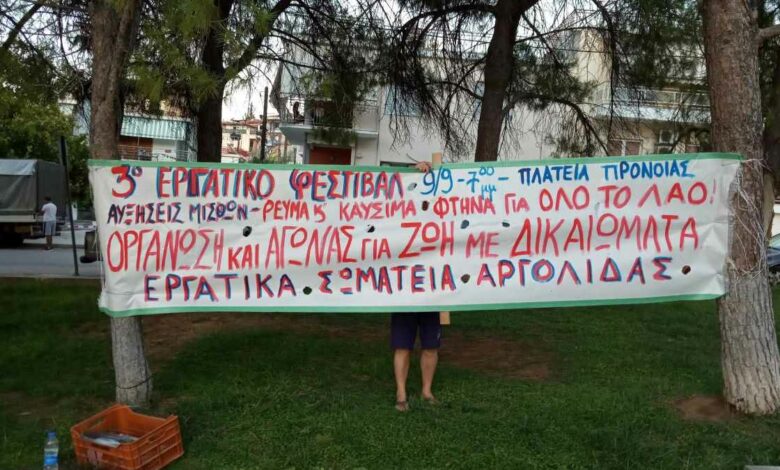 3º ΕΡΓΑΤΙΚΟ ΦΕΣΤΙΒΑΛ · 9/9 - 7⁰⁰ μμ - ΠΛΑΤΕΙΑ ΠΡΟΝΟΙΑΣ
ΑΥΞΗΣΕΙΣ ΜΙΣΘΩΝ - ΡΕΥΜΑ ΚΑΥΣΙΜΑ · ΦΤΗΝΑ ΓΙΑ ΟΛΟ ΤΟ ΛΑΟ!
ΟΡΓΑΝΩΣΗ ΚΑΙ ΑΓΩΝΑΣ ΓΙΑ ΖΩΗ ΜΕ ΔΙΚΑΙΩΜΑΤΑ
ΕΡΓΑΤΙΚΑ · ΣΩΜΑΤΕΙΑ · ΑΡΓΟΛΙΔΑΣ